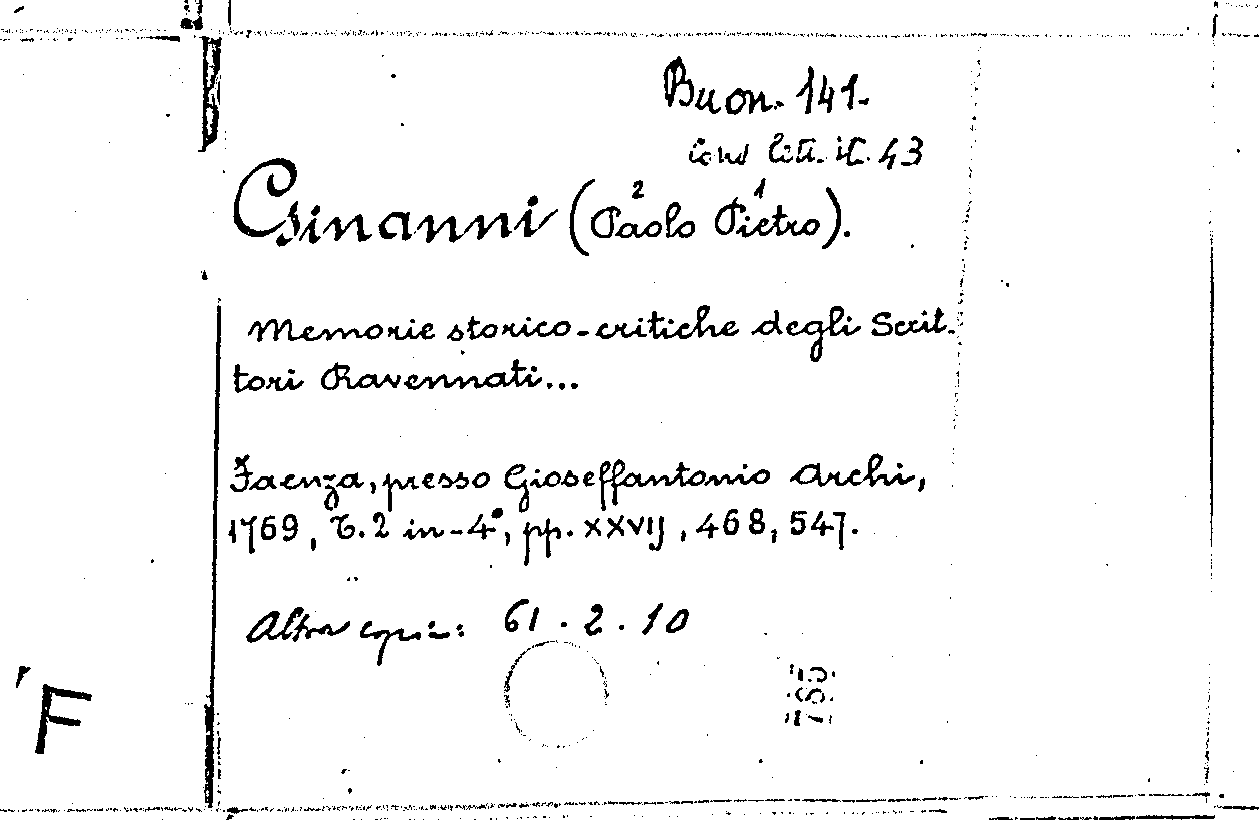 Buon. 141.
Cons lett. it. 43
2 1
Ginanni (Paolo Pietro).
Memorie storico-critiche degli Scrit-
tori Ravennati...
Faenza, presso Gioseffantonio Archi,
1769, T. 2 in-4°, pp. XXVIJ, 468, 547.
Altra copia: 61.2.10
F